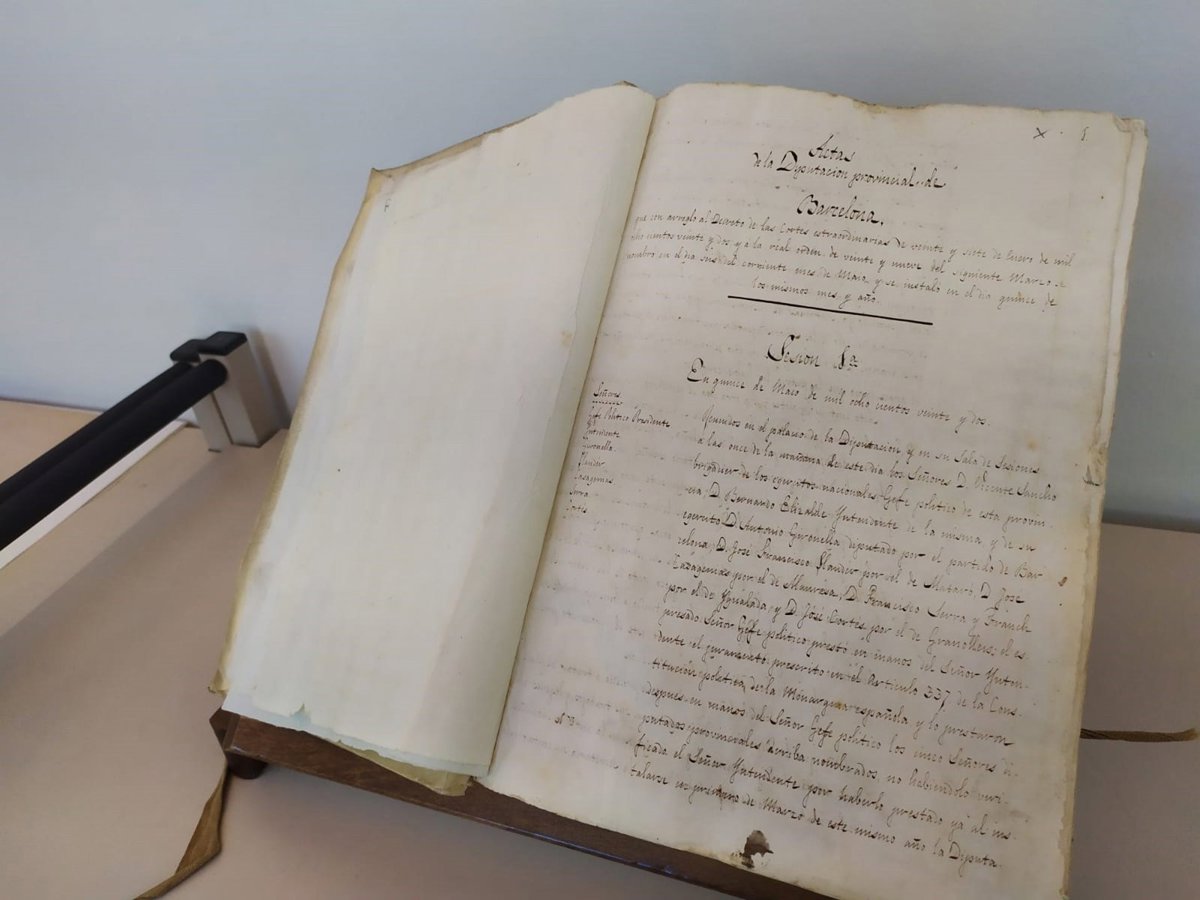 R
X 1.
Actas
de la Dyputacion provincial de
Barcelona,
que con arreglo al Decreto de las Cortes estraordinarias de veinte y siete de Enero de mil
ocho cientos veinte y dos, y a la real orden de veinte y nueve del siguiente Marzo se
nombró en el dia seis del corriente mes de Maio, y se instaló en el dia quince de
los mismos mes y año.
Sesion 1ª
En quince de Maio de mil ocho cientos veinte y dos.
Señores
Gefe Politico Presidente
Yntendente
Gironella
Llauder
Serra
Cortes
Reunidos en el palacio de la Dyputacion y en su Sala de Sesiones
a las once de la mañana de este dia los Señores D. Vicente Sancho
brigadier de los egercitos nacionales, Gefe politico de esta provin-
cia, D. Bernardo Elizalde Yntendente de la misma y de su
egercito, D. Antonio Gironella diputado por el partido de Bar-
celona, D. Jose Francisco Llauder por el de Mataró, D. Jose
por el de Manresa, D. Francisco Serra y Franch
por el de Ygualada, y D. José Cortes por el de Granollers; el es-
presado Señor Gefe politico prestó en manos del Señor Ynten-
dente el juramento prescrito en el Articulo 337 de la Cons-
titucion politica de la Monarquia española y lo prestaron
despues en manos del Señor Gefe politico los cinco Señores di-
putados provinciales arriba nombrados no habiendolo veri-
ficado el Señor Yntendente por haberlo prestado ya al ins-
talarse en primero de Marzo de este mismo año la Dyputa-